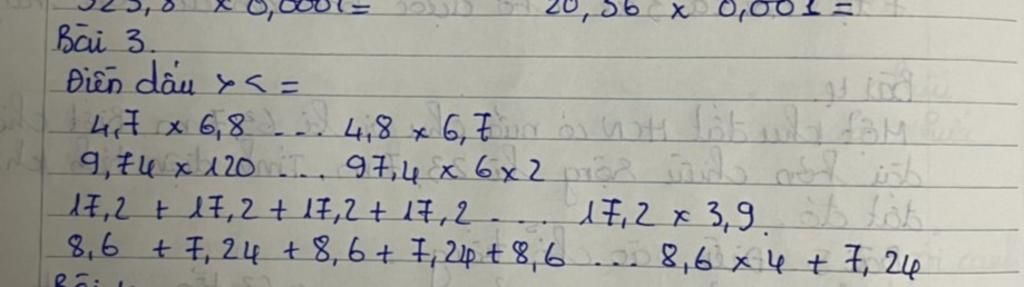 323,8 x 0,0001 = 20,56 x 0,001 =
Bài 3.
Điền dấu > < =
4,7 x 6,8 ... 4,8 x 6,7
9,74 x 120 ... 97,4 x 6 x 2
17,2 + 17,2 + 17,2 + 17,2 ... 17,2 x 3,9.
8,6 + 7,24 + 8,6 + 7,24 + 8,6 ... 8,6 x 4 + 7,24